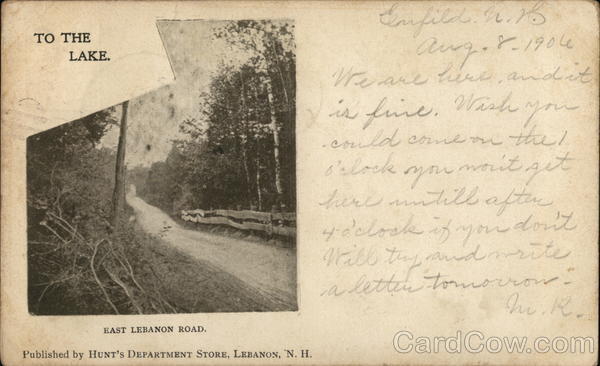 TO THE
LAKE.
EAST LEBANON ROAD.
Published by HUNT'S DEPARTMENT STORE, LEBANON, N. H.
Enfild. N. H.
Aug. 8 - 1906
We are here, and it
is fine. Wish you
could come on the 1
o'clock you wont get
here untill after
4 o'clock if you don't
Will try and write
a letter tomorrow.
M. K.
CardCow.com